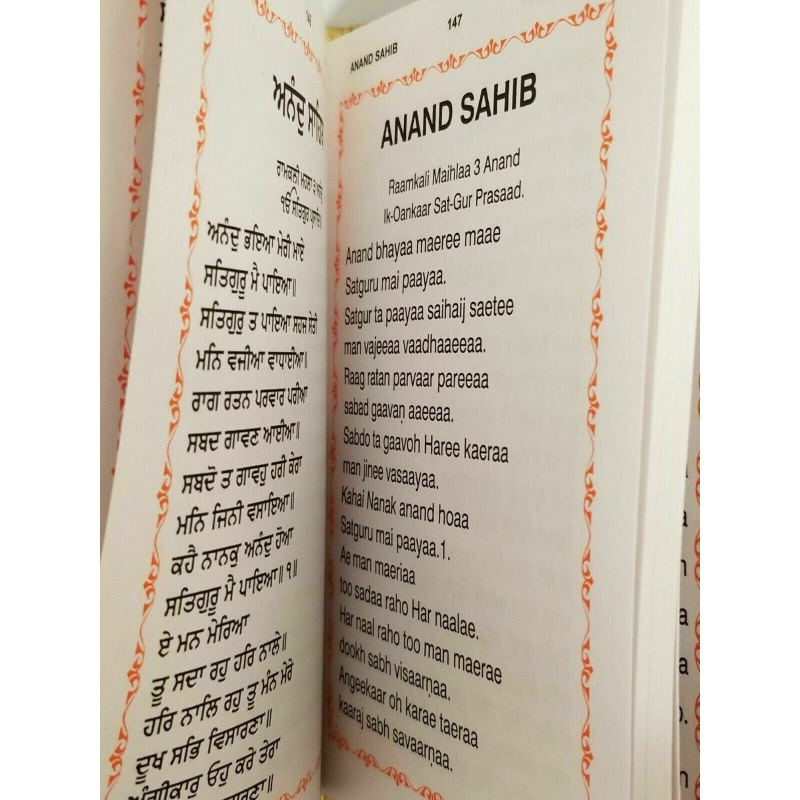 ਅਨੰਦੁ
ਰਾਮਕਲੀ ਮਹਲਾ ੩
ੴ ਸਤਿਗੁਰ
ਅਨੰਦੁ ਭਇਆ ਮੇਰੀ ਮਾਏ
ਸਤਿਗੁਰੂ ਮੈ ਪਾਇਆ॥
ਸਤਿਗੁਰੁ ਤ ਪਾਇਆ ਸਹਜ ਸੇਤੀ
ਮਨਿ ਵਜੀਆ ਵਾਧਾਈਆ॥
ਰਾਗ ਰਤਨ ਪਰਵਾਰ ਪਰੀਆ
ਸਬਦ ਗਾਵਣ ਆਈਆ॥
ਸਬਦੋ ਤ ਗਾਵਹੁ ਹਰੀ ਕੇਰਾ
ਮਨਿ ਜਿਨੀ ਵਸਾਇਆ॥
ਕਹੈ ਨਾਨਕੁ ਅਨੰਦੁ ਹੋਆ
ਸਤਿਗੁਰੂ ਮੈ ਪਾਇਆ॥ ੧॥
ਏ ਮਨ ਮੇਰਿਆ
ਤੂ ਸਦਾ ਰਹੁ ਹਰਿ ਨਾਲੇ॥
ਹਰਿ ਨਾਲਿ ਰਹੁ ਤੂ ਮੰਨ ਮੇਰੇ
ਦੂਖ ਸਭਿ ਵਿਸਾਰਣਾ॥
ਅੰਗੀਕਾਰੁ ਓਹੁ ਕਰੇ ਤੇਰਾ
ANAND SAHIB
147
ANAND SAHIB
Raamkali Maihlaa 3 Anand
Ik-Oankaar Sat-Gur Prasaad.
Anand bhayaa maeree maae
Satguru mai paayaa.
Satgur ta paayaa saihaij saetee
man vajeeaa vaadhaaeeaa.
Raag ratan parvaar pareeaa
sabad gaavaṇ aaeeaa.
Sabdo ta gaavoh Haree kaeraa
man jinee vasaayaa.
Kahai Nanak anand hoaa
Satguru mai paayaa.1.
Ae man maeriaa
too sadaa raho Har naalae.
Har naal raho too man maerae
dookh sabh visaarṇaa.
Angeekaar oh karae taeraa
kaaraj sabh savaarṇaa.